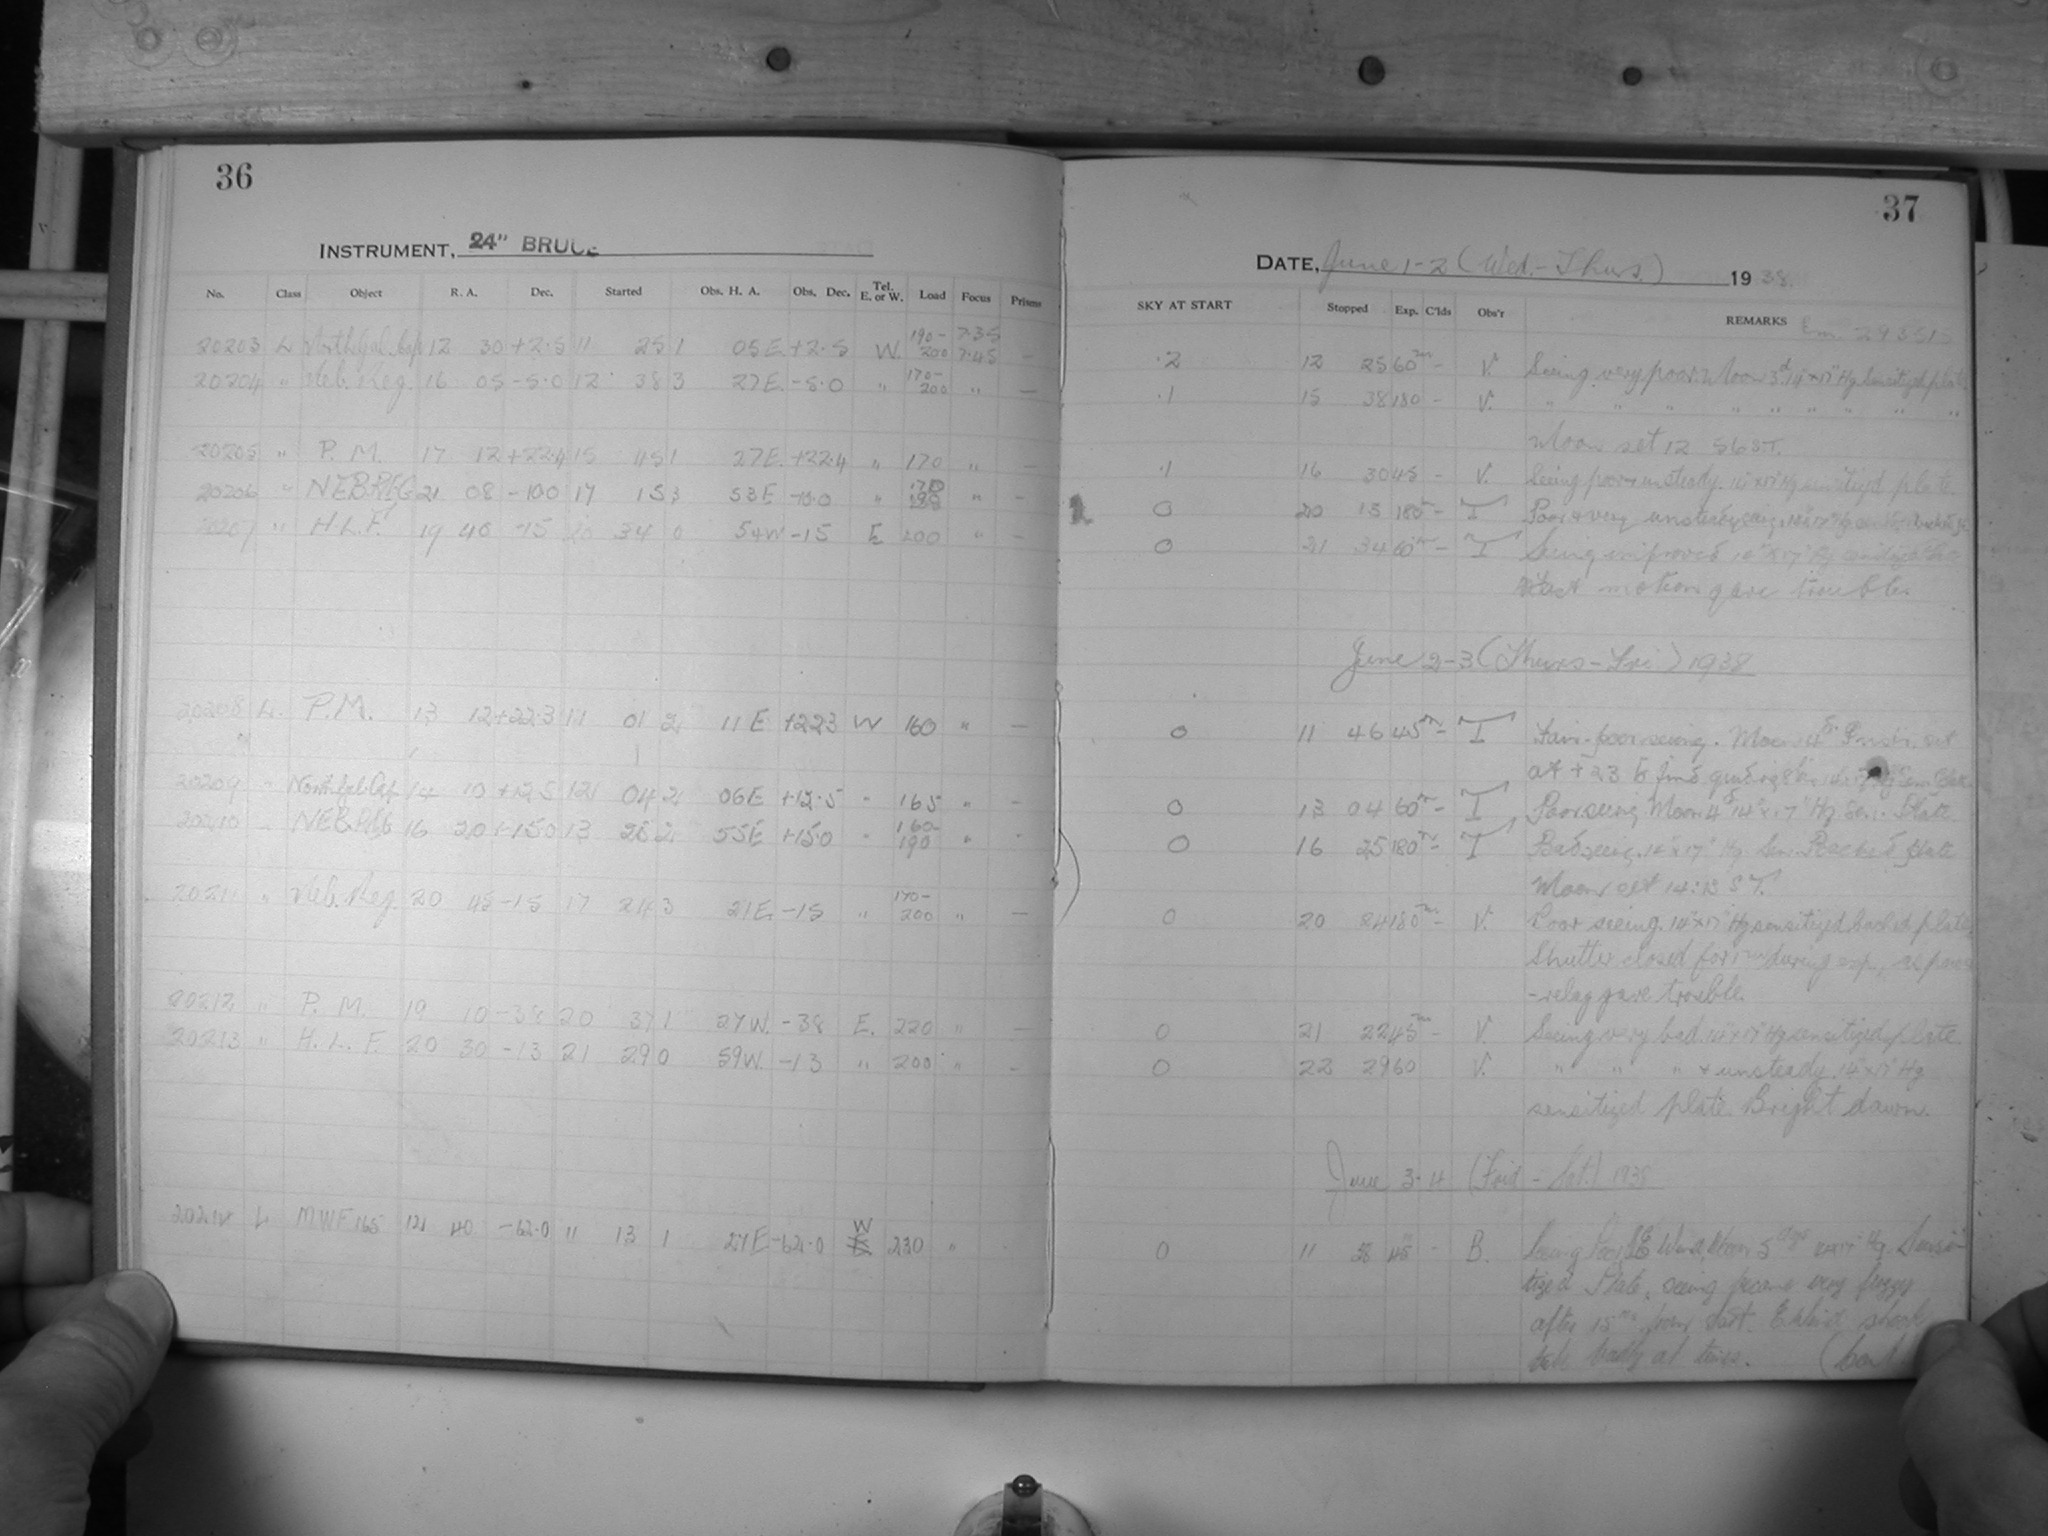 36
INSTRUMENT, 24" BRUCE
No. Class Object R. A. Dec. Started Obs. H. A. Obs. Dec. Tel. E. or W. Load Focus Prisms
20203 L North Gal. Cap 12 30 +2.5 11 25 1 05 E +2.5 W. 190-200 7.35 7.45 —
20204 " Neb. Reg. 16 05 -5.0 12 38 3 27 E. -5.0 " 170-200 " —
20205 " P. M. 17 12 +22.4 15 45 1 27 E. +22.4 " 170 " —
20206 " NEB REG 21 08 -10.0 17 15 3 53 E -10.0 " "
20207 " H. L. F. 19 40 -15 20 34 0 54 W -15 E 200 " —
20208 L. P. M. 13 12 +22.3 11 01 2 11 E +22.3 W 160 " —
20209 " North Gal. Cap 14 10 +12.5 12 04 2 06 E +12.5 " 165 " —
20210 " NEB REG 16 20 +15.0 13 25 2 55 E +15.0 " 160-190 "
20211 " Neb. Reg. 20 45 -15 17 24 3 21 E -15 " 170-200 " —
20212 " P. M. 19 10 -38 20 37 1 27 W. -38 E. 220 " —
20213 " H. L. F. 20 30 -13 21 29 0 59 W. -13 " 200 " —
20214 L MWF 165 12 40 -62.0 11 13 1 27 E -62.0 W 230 "
37
DATE, June 1-2 (Wed.-Thurs.) 1938.
SKY AT START Stopped Exp. C'lds Obs'r REMARKS
.2 12 25 60m - V. Seeing very poor. Moon 3d 14"x17" Hg sensitized plate
.1 15 38 180 - V. " " " " " " " " "
Moon set 12 56 S.T.
.1 16 30 45 - V. Seeing poor & unsteady. 14"x17" Hg sensitized plate.
0 20 15 180m - T Poor & very unsteady seeing. 14"x17" Hg
0 21 34 60m - T Seeing improved 14"x17" Hg
motion gave trouble.
June 2-3 (Thurs-Fri.) 1938
0 11 46 45m - T Fair-poor seeing. Moon 4d. set
at +23 to find guiding
0 13 04 60m - T Poor seeing Moon 4d 14"x17" Hg. Sen. Plate
0 16 25 180m - T Bad seeing. 14"x17" Hg. Sen. Backed plate
Moon set 14:13 S.T.
0 20 24 180m - V. Poor seeing. 14"x17" Hg sensitized backed plate.
Shutter closed for during exp., as
-relay gave trouble.
0 21 22 45m - V. Seeing very bad. 14"x17" Hg sensitized plate.
0 22 29 60 V. " " " & unsteady. 14"x17" Hg
sensitized plate. Bright dawn.
June 3-4 (Frid - Sat.) 1938
0 11 58 45 - B. Seeing Poor, SE Wind, Moon 5 days 14x17" Hg Sensi-
tized Plate, seeing became very fuzzy
after 15m from start. E. wind shook
tube badly at times. (